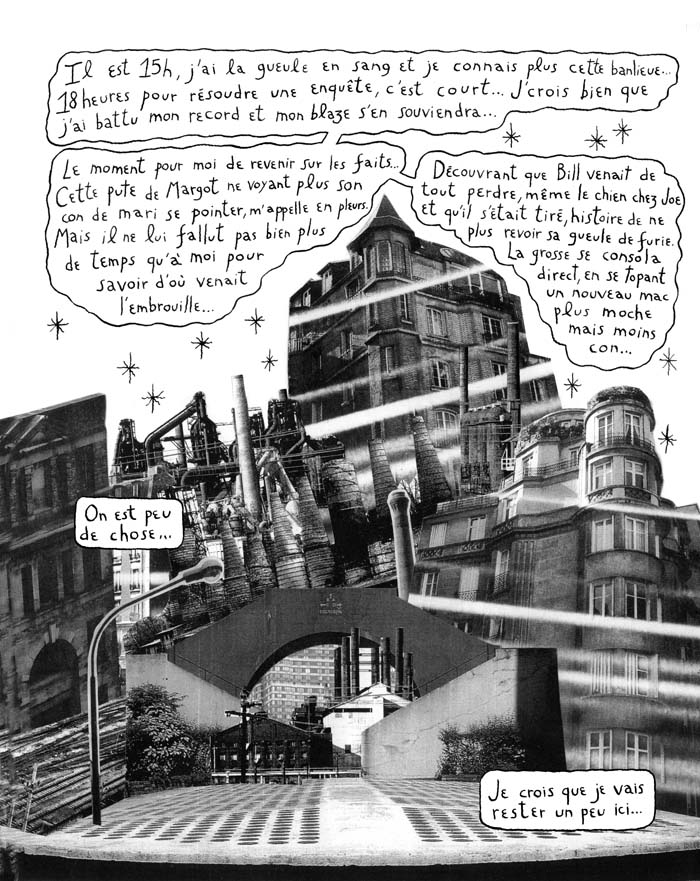 Il est 15h, j'ai la gueule en sang et je connais plus cette banlieue...
18 heures pour résoudre une enquête, c'est court... J'crois bien que
j'ai battu mon record et mon blaze s'en souviendra...
Le moment pour moi de revenir sur les faits...
Cette pute de Margot ne voyant plus son
con de mari se pointer, m'appelle en pleurs.
Mais il ne lui fallut pas bien plus
de temps qu'à moi pour
savoir d'où venait
l'embrouille...
Découvrant que Bill venait de
tout perdre, même le chien chez Joe
et qu'il s'était tiré, histoire de ne
plus revoir sa gueule de furie.
La grosse se consola
direct, en se topant
un nouveau mac
plus moche
mais moins
con...
On est peu
de chose...
Je crois que je vais
rester un peu ici...